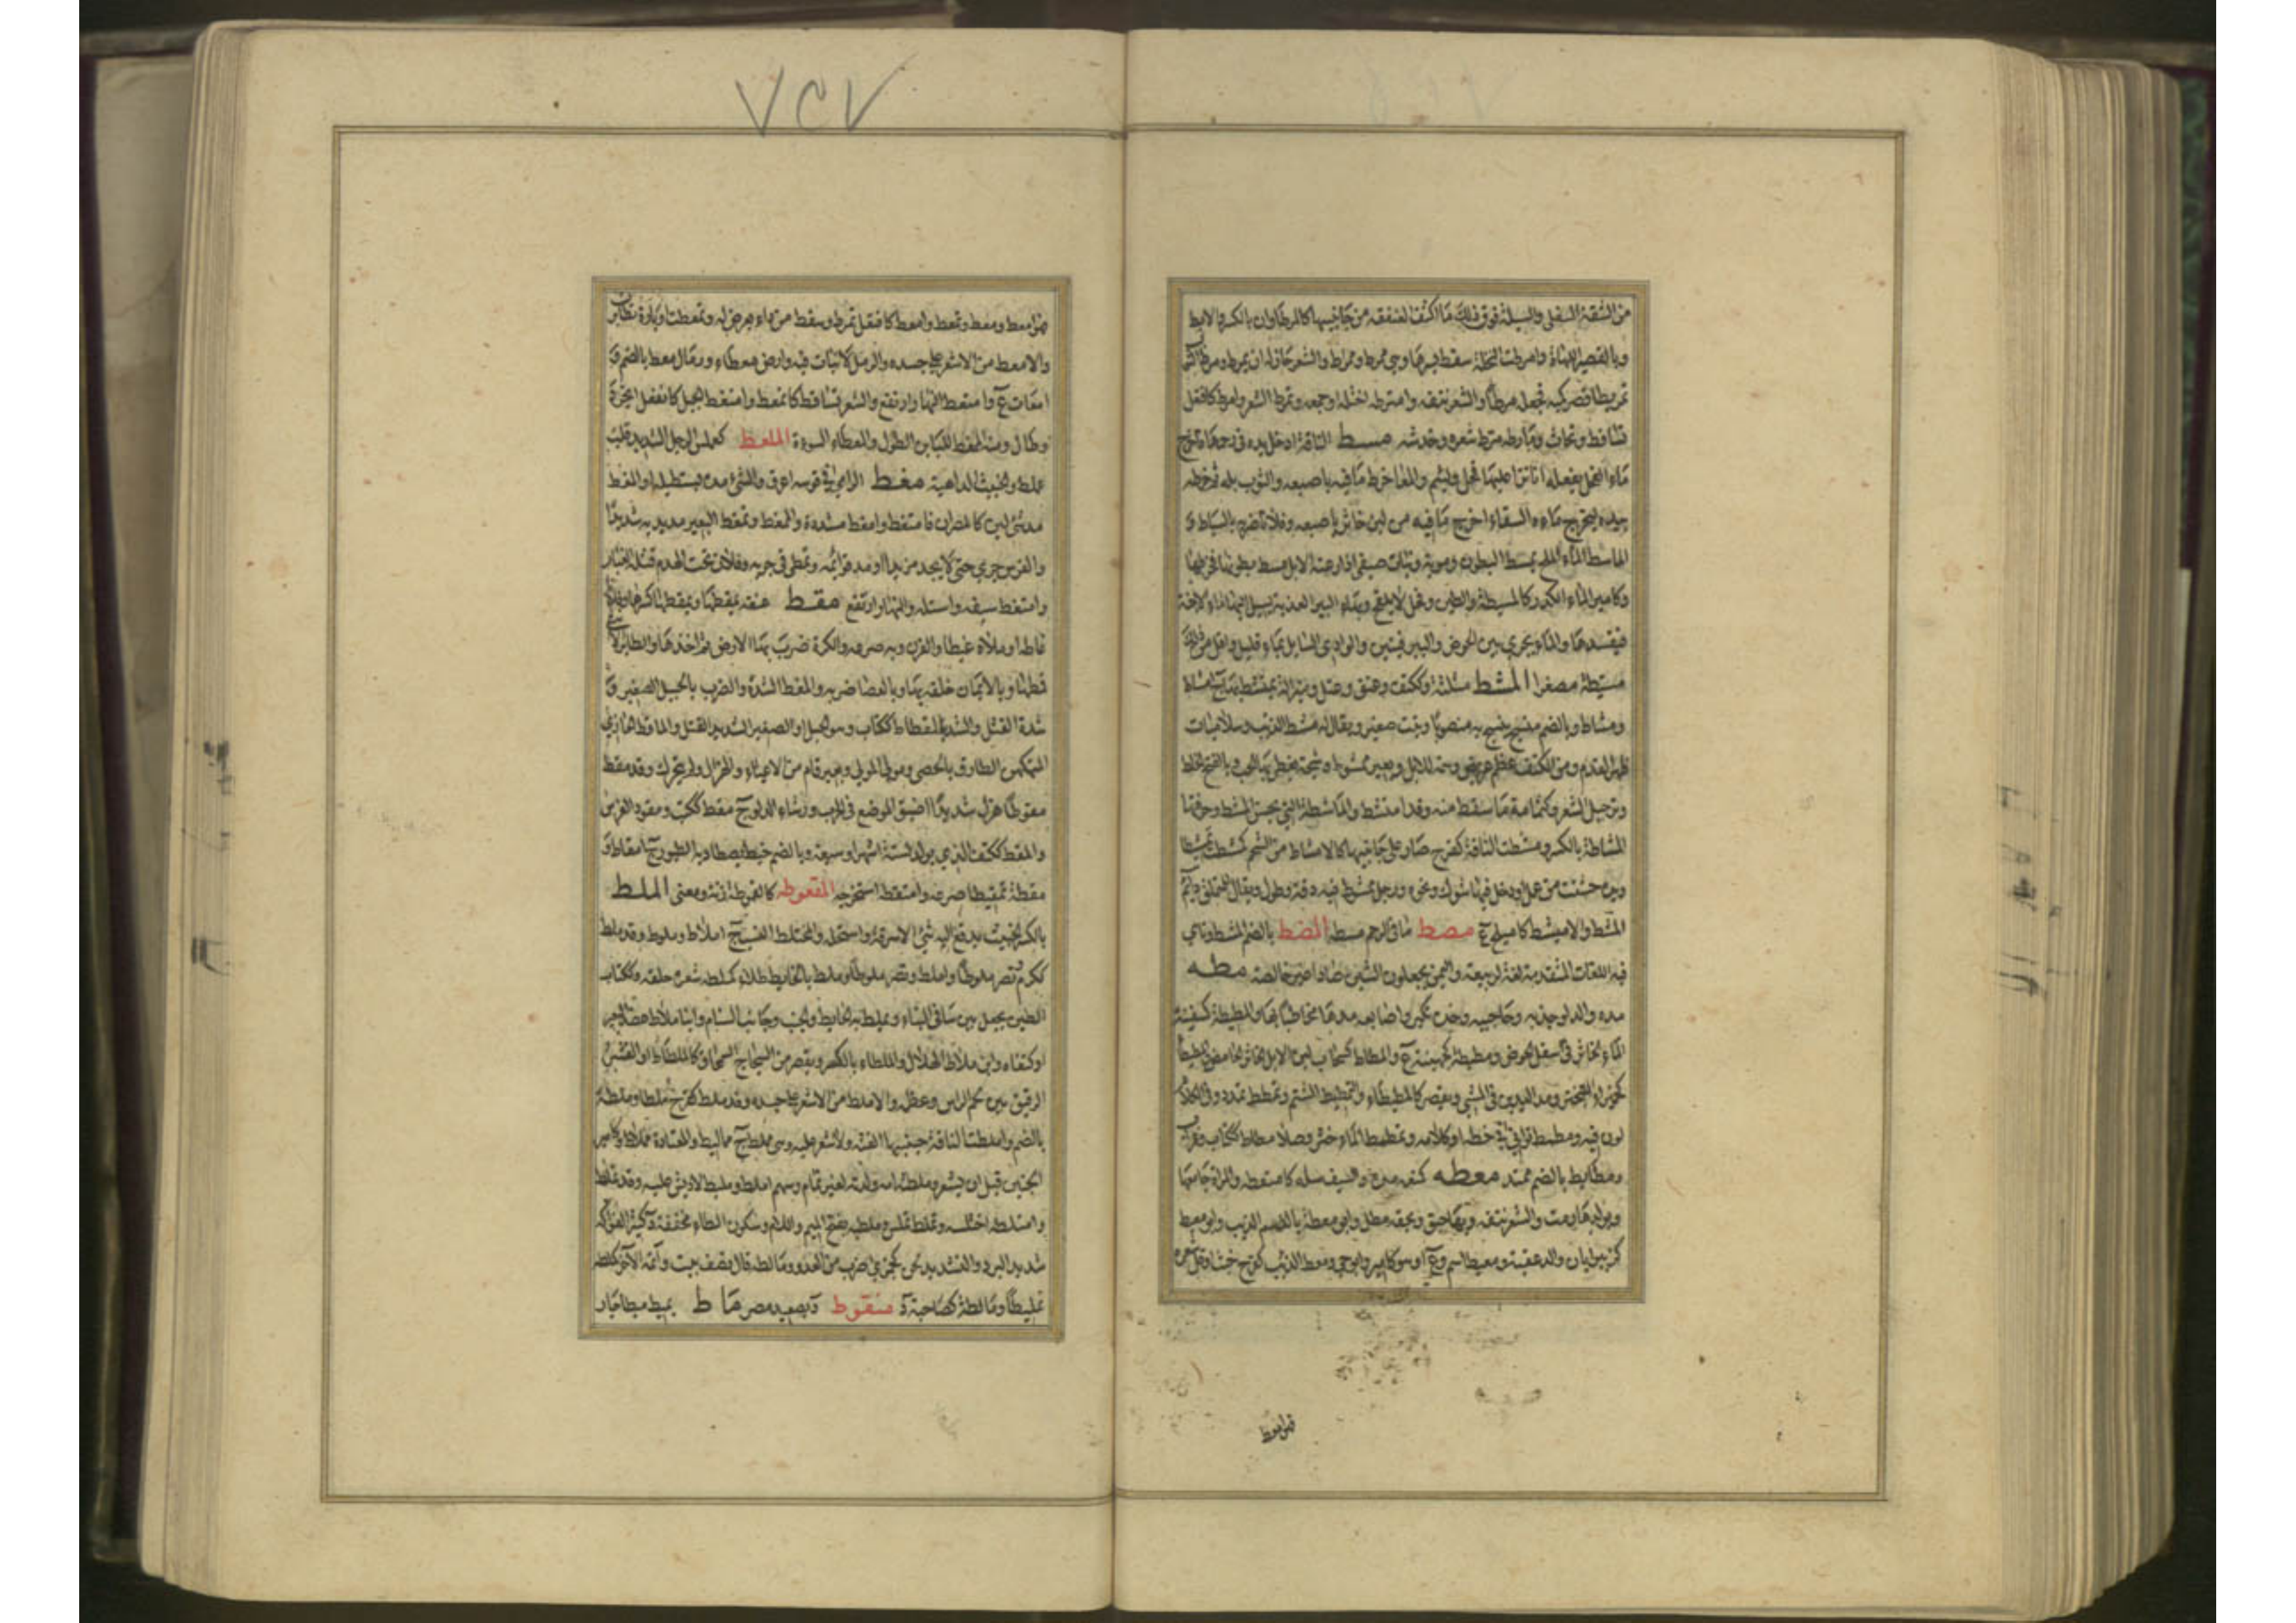 من الشفة السفلى والسبلة فوق ذلك مما اكتنف العنفقة من جانبيها كالمرطاوان بالكسر والابط
وبالقصر اللهاة وامرطت النخلة سقط بسرها وهي ممرط وممراط والشعر حان له ان يمرط ومرط الثوب
تمريطا قصر كميه فجعله مرطا والشعر نتفه وامترطه اختلسه او جمعه وتمرط الشعر وامرط كافتعل
تساقط وتحات ومارطه مرط شعره وخدشه مسط الناقة ادخل يده في رحمها فاخرج
ماء الفحل يفعله اذا نزا عليها فحل لئيم والمعا خرط ما فيه باصبعه والثوب بله ثم خرطه
بيده ليخرج ماءه السقاء اخرج ما فيه من لبن خاثر باصبعه وفلانا ضربه بالسياط و
الماسط الماء الملح يمسط البطون ومويه ونبات صيفي اذا رعته الابل مسط بطونها فخرطها
وكامير الماء الكدر كالمسيطة والطين وفحل لا يلقح وبهاء البير العذبة يسيل اليها ماء الاجنة
فيفسدها والماء يجري بين الحوض والبير فينتن والوادي السايل بماء قليل واقل من ذلك
مسيطة مصغرا المشط مثلثة وككتف وعنق وعتل ومنبر آلة يمتشط بها ج امشاط
ومشاط وبالضم منسج ينسج به منصوبا ونبت صغير ويقال له مشط الذيب وسلاميات
ظهر القدم ومن الكتف عظم عريض وسمة للابل وبعير ممشوط وسبحة يغطى بها الحب وبالفتح الخلط
وترجيل الشعر وكثمامة ما سقط منه وقد امتشط والماشطة التي تحسن المشط وحرفتها
المشاطة بالكسر ومشطت الناقة كفرح صار على جانبيها كالامشاط من الشحم كمشطت تمشيطا
ويده خشنت من عمل او دخل فيها شوك ونحوه ورجل ممشوط فيه دقة وطول ويقال للمتملق دائم
المشط والاميشط كاميلح ع مصط ما في الرحم مسطه المضط بالضم المشط وناهي
فيه اللغات المتقدمة لغة لربيعة واليمن يجعلون الشين ضادا غير خالصة مطه
مده والدلو جذبه وحاجبيه وخده تكبر واصابعه مدها مخاطبا بها والمطيطة كسفينة
الماء الخاثر في اسفل الحوض ومطيطة كجهينة ع والمطاط كسحاب لبن الابل الخاثر الحامض والمطيطا
التبختر ومد اليدين في المشي ويقصر كالمطيطاء والتمطيط الشتم وتمطط تمدد وفي الكلام
لون فيه ومطمط توانى في خطه او كلامه وتمطمط الماء خثر وصلا مطاط ككتاب وغراب
ومطايط بالضم ممتد معطه كمنعه مده والسيف سله كامتعطه والمراة جامعها
وبولدها رمت والشعر نتفه وبها حبق وبحقه مطل وابو معطة بالضم الذيب وابو معيط
كزبير ابان والد عقبة ومعيط اسم وع او هو كامير وابو حي ومعط الذيب كفرح خبث او قل شعره
فهو امعط
٧٢٧
فهو امعط ومعط وتمعط وامعط كافتعل تمرط وسقط من داء يعرض له وتمعطت اوباره تطايرت
والامعط من لا شعر على جسده والرمل لا نبات فيه وارض معطاء ورمال معط بالضم و
امعاط ع وامتعط النهار ارتفع والشعر تساقط كتمعط وامتعط الحبل كانفعل انجرد
وطال ومنه الممعط للباين الطول والمعطاء السوءة الملعط كعملس الرجل الشديد قلب
عملط والخبيث الداهية مغط الرامي في قوسه اغرق والشيء مده يستطيله او المغط
مد شيء لين كالمصران فامتغط وامغط مشددة والممغط وتمغط البعير مد يديه شديدا
والفرس جرى حتى لا يجد مزيدا او مد قوائمه وتمطى في جريه وفلان تحت الهدم قتله الغبار
وامتغط سيفه واستله والنهار ارتفع مقط عنقه يمقطها ويمقطها كسرها وفلانا
غاظه او ملأه غيظا والقرن وبه صرعه والكرة ضرب بها الارض ثم اخذها والطائر الانثى
قمطها وبالايمان حلفه بها وبالعصا ضربه والمقط الشدة والضرب بالحبيل الصغير و
شدة الفتل والشد بالمقاط ككتاب وهو الحبل او الصغير الشديد الفتل والماقط الحازي
المتكهن الطارق بالحصى ومولى المولى وبعير قام من الاعياء والهزال ولم يتحرك وقد مقط
مقوطا هزل شديدا اضيق الموضع في الحرب ورشاء الدلو ج مقط ككتب ومقود الفرس
والمقط ككتف الذي يولد لستة اشهر او سبعة وبالضم خيط يصطاد به الطير ج امقاط و
مقطه تمقيطا صرعه وامتقطه استخرجه المقعوطة كالقمعوطة زنة ومعنى الملط
بالكسر الخبيث يدفع اليه شيء الا سرقه واستحله والمختلط النسب ج املاط وملوط وقد ملط
ككرم نصر ملوطا وملط ونصر ملوطا وملط بالحائط طلاه كملطه شعره حلقه وككتاب
الطين يجعل بين سافي البناء ويملط به الحايط والجنب وجانبا السنام وابنا ملاط عضدا البعير
او كتفاه وابن ملاط الهلال والملطاء بالكسر ويقصر من الشجاج السمحاق كالملطاة او القشر
الرقيق بين لحم الراس وعظمه والاملط من لا شعر على جسده وقد ملط كفرح ملطا وملطة
بالضم واملطت الناقة جنينها القته ولا شعر عليه وهي مملط ج مماليط والمعتادة مملاط وكامير
الجنين قبل ان يشعر وملطته امه ولدته لغير تمام وسهم املط ومليط لا ريش عليه وقد تملط
وامتلطه اختلسه وتملط تملس وملطية بفتح الميم واللام وسكون الطاء مخففة د كثير الفواكه
شديد البرد والتشديد لحن كجمزى ضرب من العدو ومالطه قال نصف بيت واتمه الآخر كملطه
تمليطا ومالطة كصاحبة د منقوط د بصعيد مصر ماط يميط ميطا جار